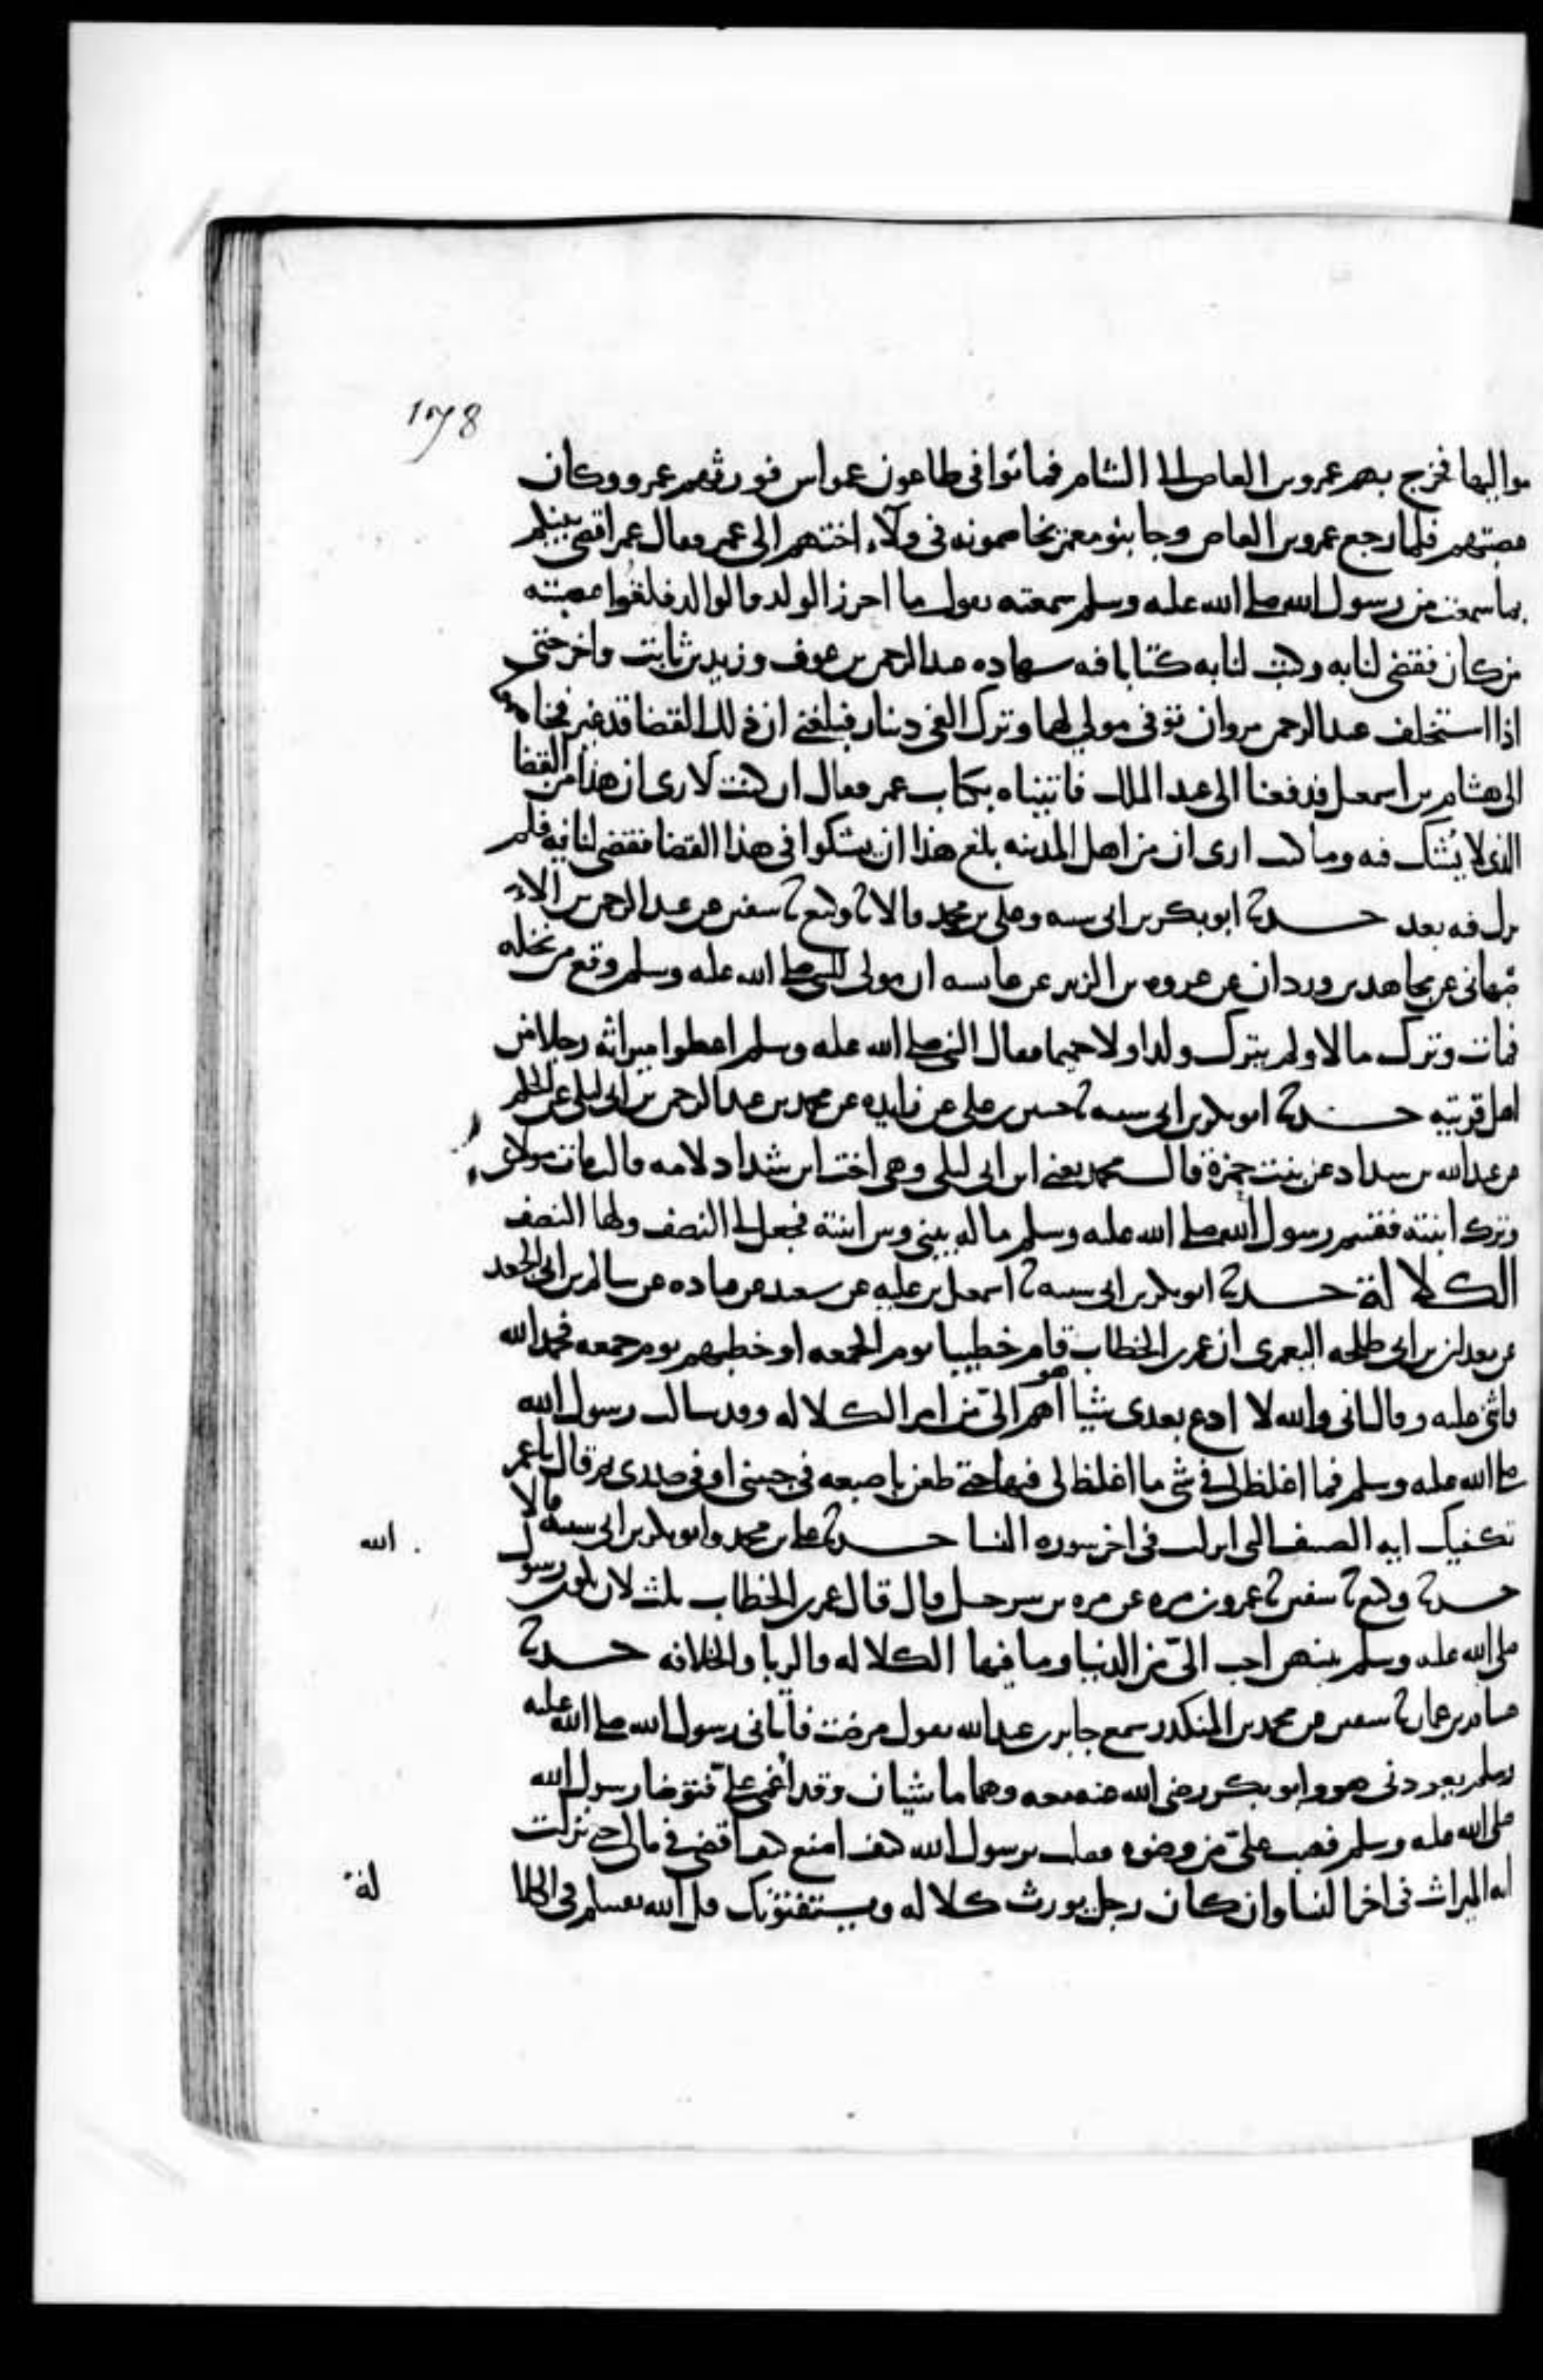 178
مواليها فخرج بهم عمرو بن العاص الى الشام فماتوا في طاعون عمواس فورثهم عمرو وكان
عصبتهم فلما رجع عمرو بن العاص وجا بنو معمر يخاصمونه في ولآء اختهم الى عمر فقال عمر اقضي بينكم
بما سمعت من رسول الله صلى الله عليه وسلم سمعته يقول ما احرز الولد والوالد فلهو لعصبته
من كان فقضى لنا به وكتب لنا به كتابا فيه شهاده عبد الرحمن بن عوف وزيد بن ثابت واخر حتى
اذا استخلف عبد الرحمن مروان توفى مولى لها وترك الفي دينار فبلغني ان ذلك القضا قد غير فخاصموا
الى هشام بن اسمعيل فدفعنا الى عبد الملك فاتيناه بكتاب عمر فقال ان كنت لارى ان هذا من القضا
الذي لا يُشك فيه وما كنت ارى ان من اهل المدينه بلغ هذا ان يشكوا في هذا القضا فقضى لنا فيه فلم
نزل فيه بعد حدثنا ابو بكر بن ابي شيبه وعلي بن محمد قالا ثنا وكيع ثنا سفين عن عبد الرحمن بن الاص
بهاني عن مجاهد بن وردان عن عروه بن الزبير عن عايشه ان مولى للنبي صلى الله عليه وسلم وقع من نخله
فمات وترك مالا ولم يترك ولدا ولا حميما فقال النبي صلى الله عليه وسلم اعطوا ميراثه رجلا من
اهل قريته حدثنا ابو بكر بن ابي شيبه ثنا حسين بن علي عن زايده عن محمد بن عبد الرحمن بن ابي ليلى عن الحكم
عن عبد الله بن شداد عن بنت حمزة قال محمد يعني ابن ابي ليلى وهي اخت ابن شداد لامه قالت مات مولاي
وترك ابنته فقسم رسول الله صلى الله عليه وسلم ماله بيني وبين ابنته فجعل لي النصف ولها النصف
الكلالة حدثنا ابو بكر بن ابي شيبه ثنا اسمعيل بن عليه عن سعيد عن قتاده عن سالم بن ابي الجعد
عن معدان بن ابي طلحه اليعمري ان عمر بن الخطاب قام خطيبا يوم الجمعه او خطبهم يوم جمعه فحمد الله
واثنى عليه وقال اني والله لا ادع بعدي شيا هو اهم اليّ من امر الكلاله وقد سالت رسول الله
صلى الله عليه وسلم فما اغلظ لي في شي ما اغلظ لي فيها حتى طعن باصبعه في جنبي او في صدري ثم قال يا عمر
تكفيك ايه الصيف التي انزلت في اخر سوره النسا حدثنا علي بن محمد وابو بكر بن ابي شيبه قالا
حدثنا وكيع ثنا سفين ثنا عمرو بن مره عن مره بن شرحيل قال قال عمر بن الخطاب ثلث لان يكون رسول
الله
صلى الله عليه وسلم بينهن احب اليّ من الدنيا وما فيها الكلاله والربا والخلافه حدثنا
هشام بن عمار ثنا سفين عن محمد بن المنكدر سمع جابر بن عبد الله يقول مرضت فاتاني رسول الله صلى الله عليه
وسلم يعودني هو وابو بكر رضي الله عنه معه وهما ماشيان وقد اُغمي عليّ فتوضا رسول الله
صلى الله عليه وسلم فصب عليّ من وضوه فقلت يرسول الله كيف اصنع كيف اقضي في مالي حتى نزلت
ايه الميراث في اخر النسا وان كان رجل يورث كلاله ويستفتونك قل الله يفتيكم في الكلا
لة